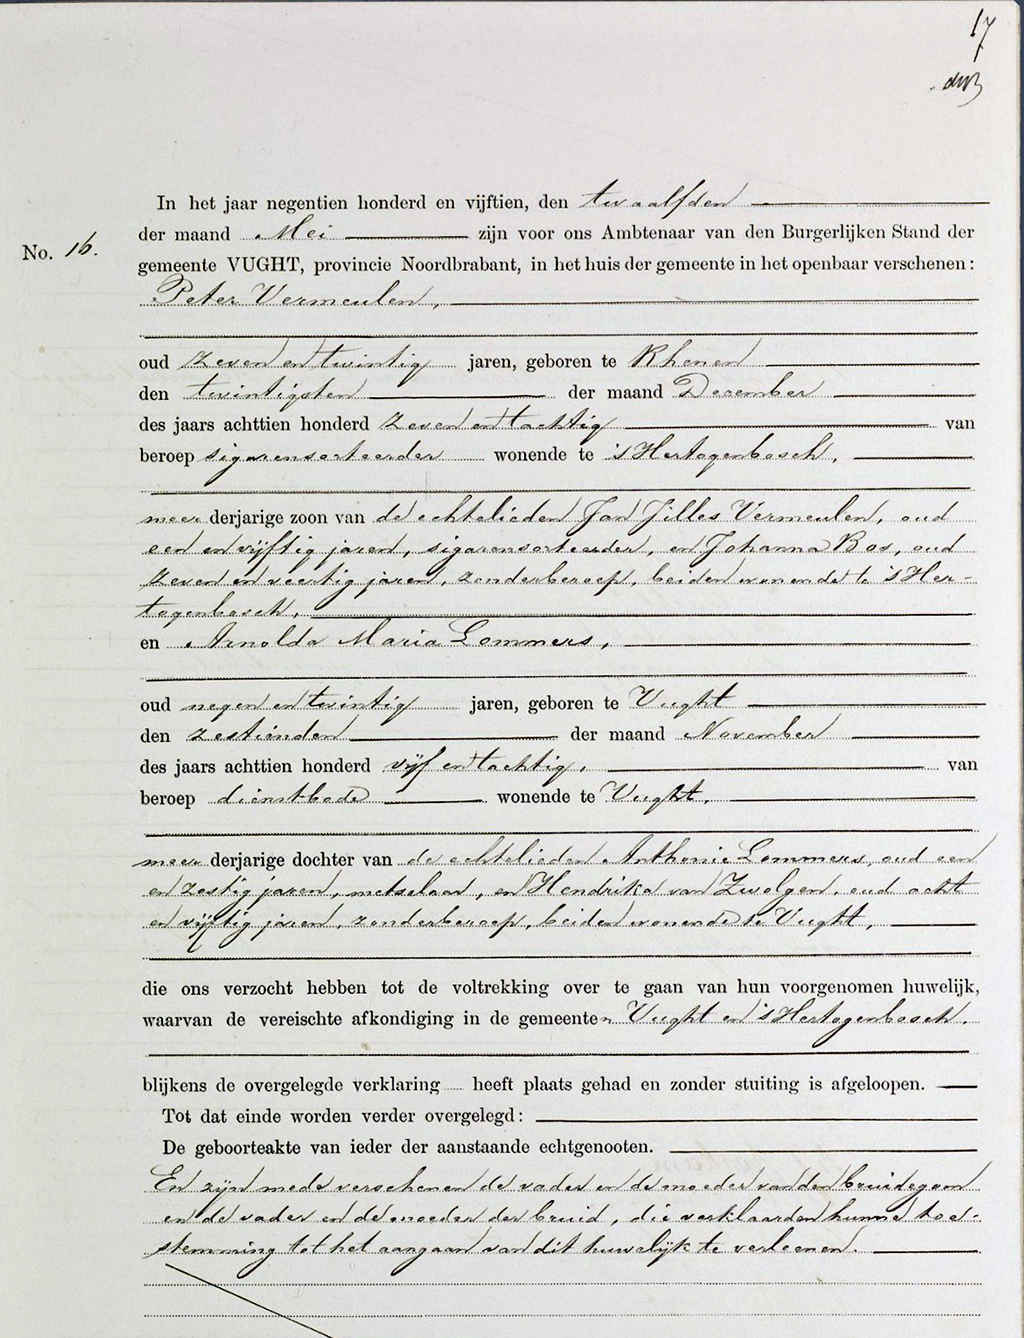 17
In het jaar negentien honderd en vijftien, den twaalfden
der maand Mei zijn voor ons Ambtenaar van den Burgerlijken Stand der
No. 16.
gemeente VUGHT, provincie Noordbrabant, in het huis der gemeente in het openbaar verschenen:
Peter Vermeulen,
oud zeven en twintig jaren, geboren te Rhenen
den twintigsten der maand December
des jaars achttien honderd zeven en tachtig van
beroep sigarensorteerder wonende te 's Hertogenbosch,
meerderjarige zoon van de echtelieden Jan Jilles Vermeulen, oud
een en vijftig jaren, sigarensorteerder, en Johanna Bos, oud
zeven en veertig jaren, zonder beroep, beiden wonende te 's Her-
togenbosch,
en Arnolda Maria Lommers,
oud negen en twintig jaren, geboren te Vught
den zestienden der maand November
des jaars achttien honderd vijf en tachtig, van
beroep dienstbode wonende te Vught,
meerderjarige dochter van de echtelieden Anthonie Lommers, oud een
en zestig jaren, metselaar, en Hendrika van Zwolgen, oud acht
en vijftig jaren, zonder beroep, beiden wonende te Vught,
die ons verzocht hebben tot de voltrekking over te gaan van hun voorgenomen huwelijk,
waarvan de vereischte afkondiging in de gemeenten Vught en 's Hertogenbosch,
blijkens de overgelegde verklaring heeft plaats gehad en zonder stuiting is afgeloopen.
Tot dat einde worden verder overgelegd:
De geboorteakte van ieder der aanstaande echtgenooten.
En zijn mede verschenen de vader en de moeder van den bruidegom
en de vader en de moeder der bruid, die verklaarden hunne toe-
stemming tot het aangaan van dit huwelijk te verleenen.